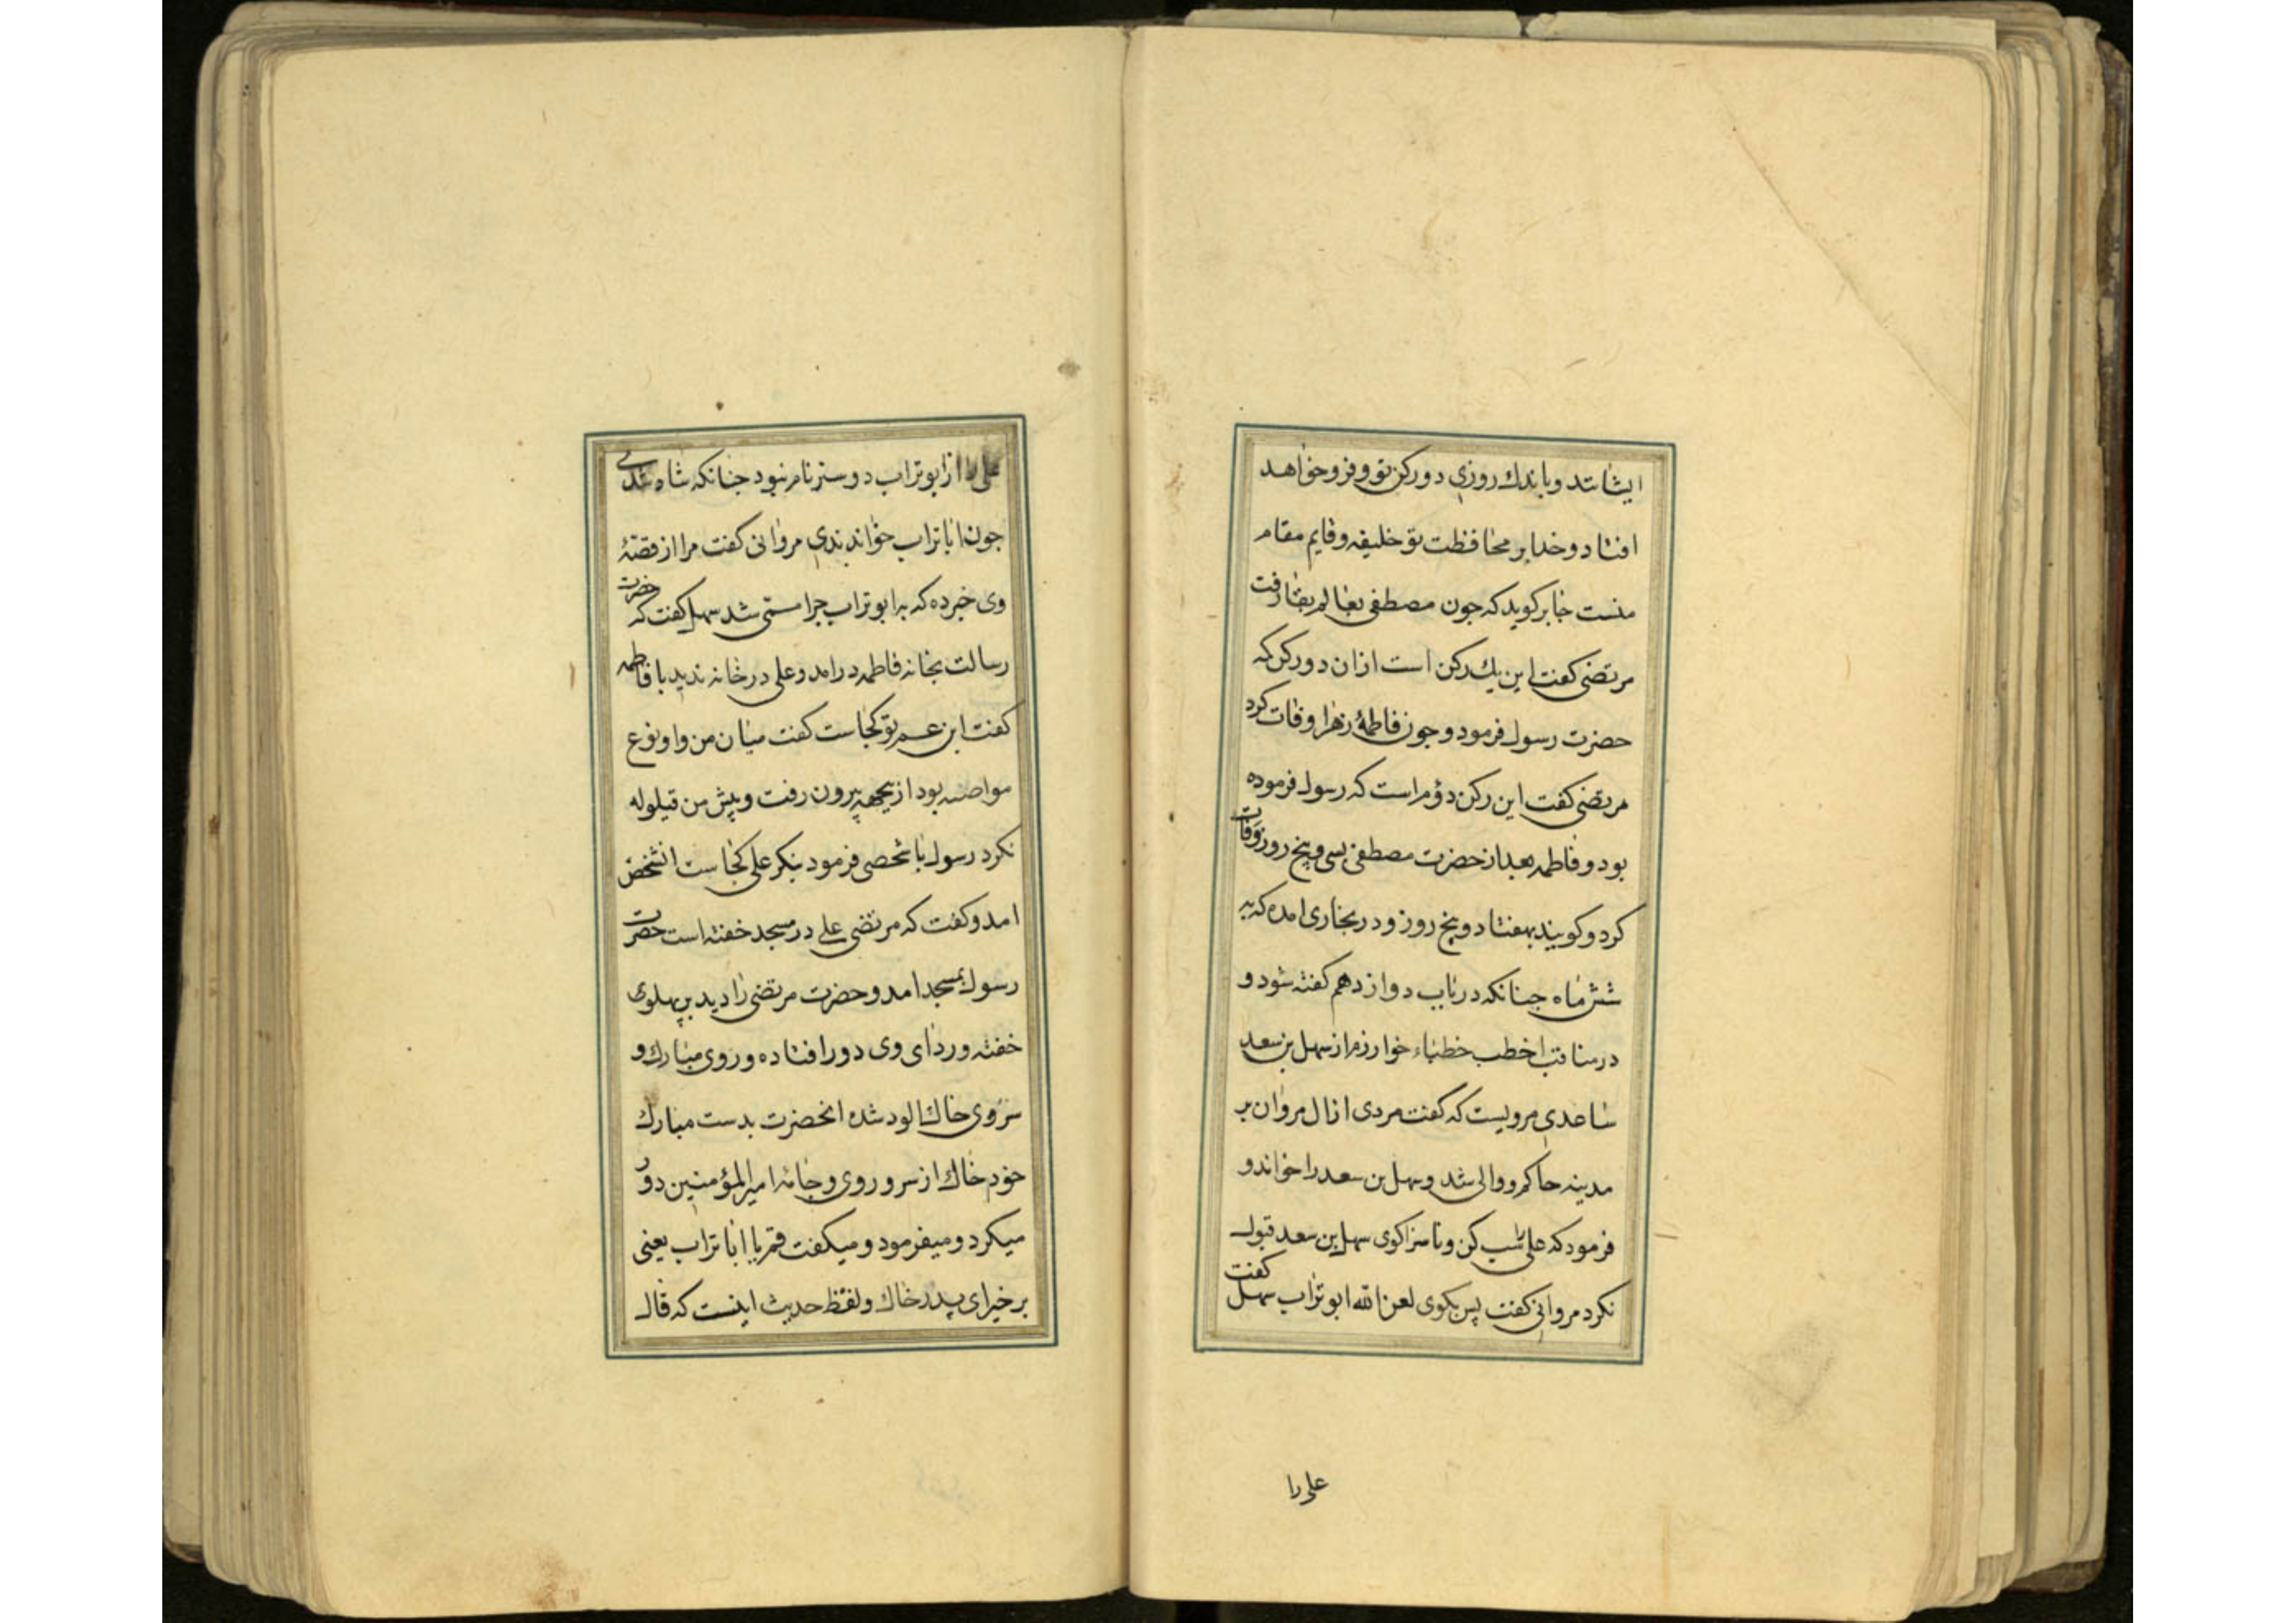 ایشانند و باندك روزی دو ركن تو فرو خواهد
افتاد و خدا بر محافظت تو خلیفه و قایم مقام
منست جابر كوید كه جون مصطفی بعالم بقا رفت
مرتضی كفت این یك ركن است ازان دو ركن كه
حضرت رسول فرمود و جون فاطمهٔ زهرا وفات كرد
مرتضی كفت این ركن دؤم است كه رسول فرموده
بود و فاطمه بعد از حضرت مصطفی بسی و پنج روز وفات
كرد و كویند بهفتاد و پنج روز و در بخاری امده كه به
شش ماه جنانكه در باب دوازدهم كفته شود و
در مناقب اخطب خطباء خوارزم از سهل بن سعد
ساعدی مرویست كه كفت مردی از ال مروان بر
مدینه حاكم و والی شد و سهل بن سعد را خواند و
فرمود كه علی را سب كن و ناسزا كوی سهل بن سعد قبول
نكرد مروانی كفت پس بكوی لعن الله ابو تراب سهل كفت
علی را
علی را از ابو تراب دوستر نام نبود جنانكه شاد شدی
جون ابا تراب خواندندی مروانی كفت مرا از قصهٔ
وی خبر ده كه به ابو تراب جرا مسمی شد سهل كفت كه حضرت
رسالت بخانه فاطمه درامد و علی در خانه ندید با فاطمه
كفت ابن عم تو كجاست كفت میان من و او نوع
بود ازیجهه بیرون رفت و پیش من قیلوله
نكرد رسول با شخصی فرمود بنكر علی كجاست انشخص
امد و كفت كه مرتضی علی در مسجد خفته است حضرت
رسول بمسجد امد و حضرت مرتضی را دید بر پهلوی
خفته و ردای وی دور افتاده و روی مبارك و
سر وی خاك الود شده انحضرت بدست مبارك
خود خاك از سر و روی و جامهٔ امیر المؤمنین دور
میكرد و میفرمود و میكفت قم یا ابا تراب یعنی
برخیز ای پدر خاك و لفظ حدیث اینست كه قال